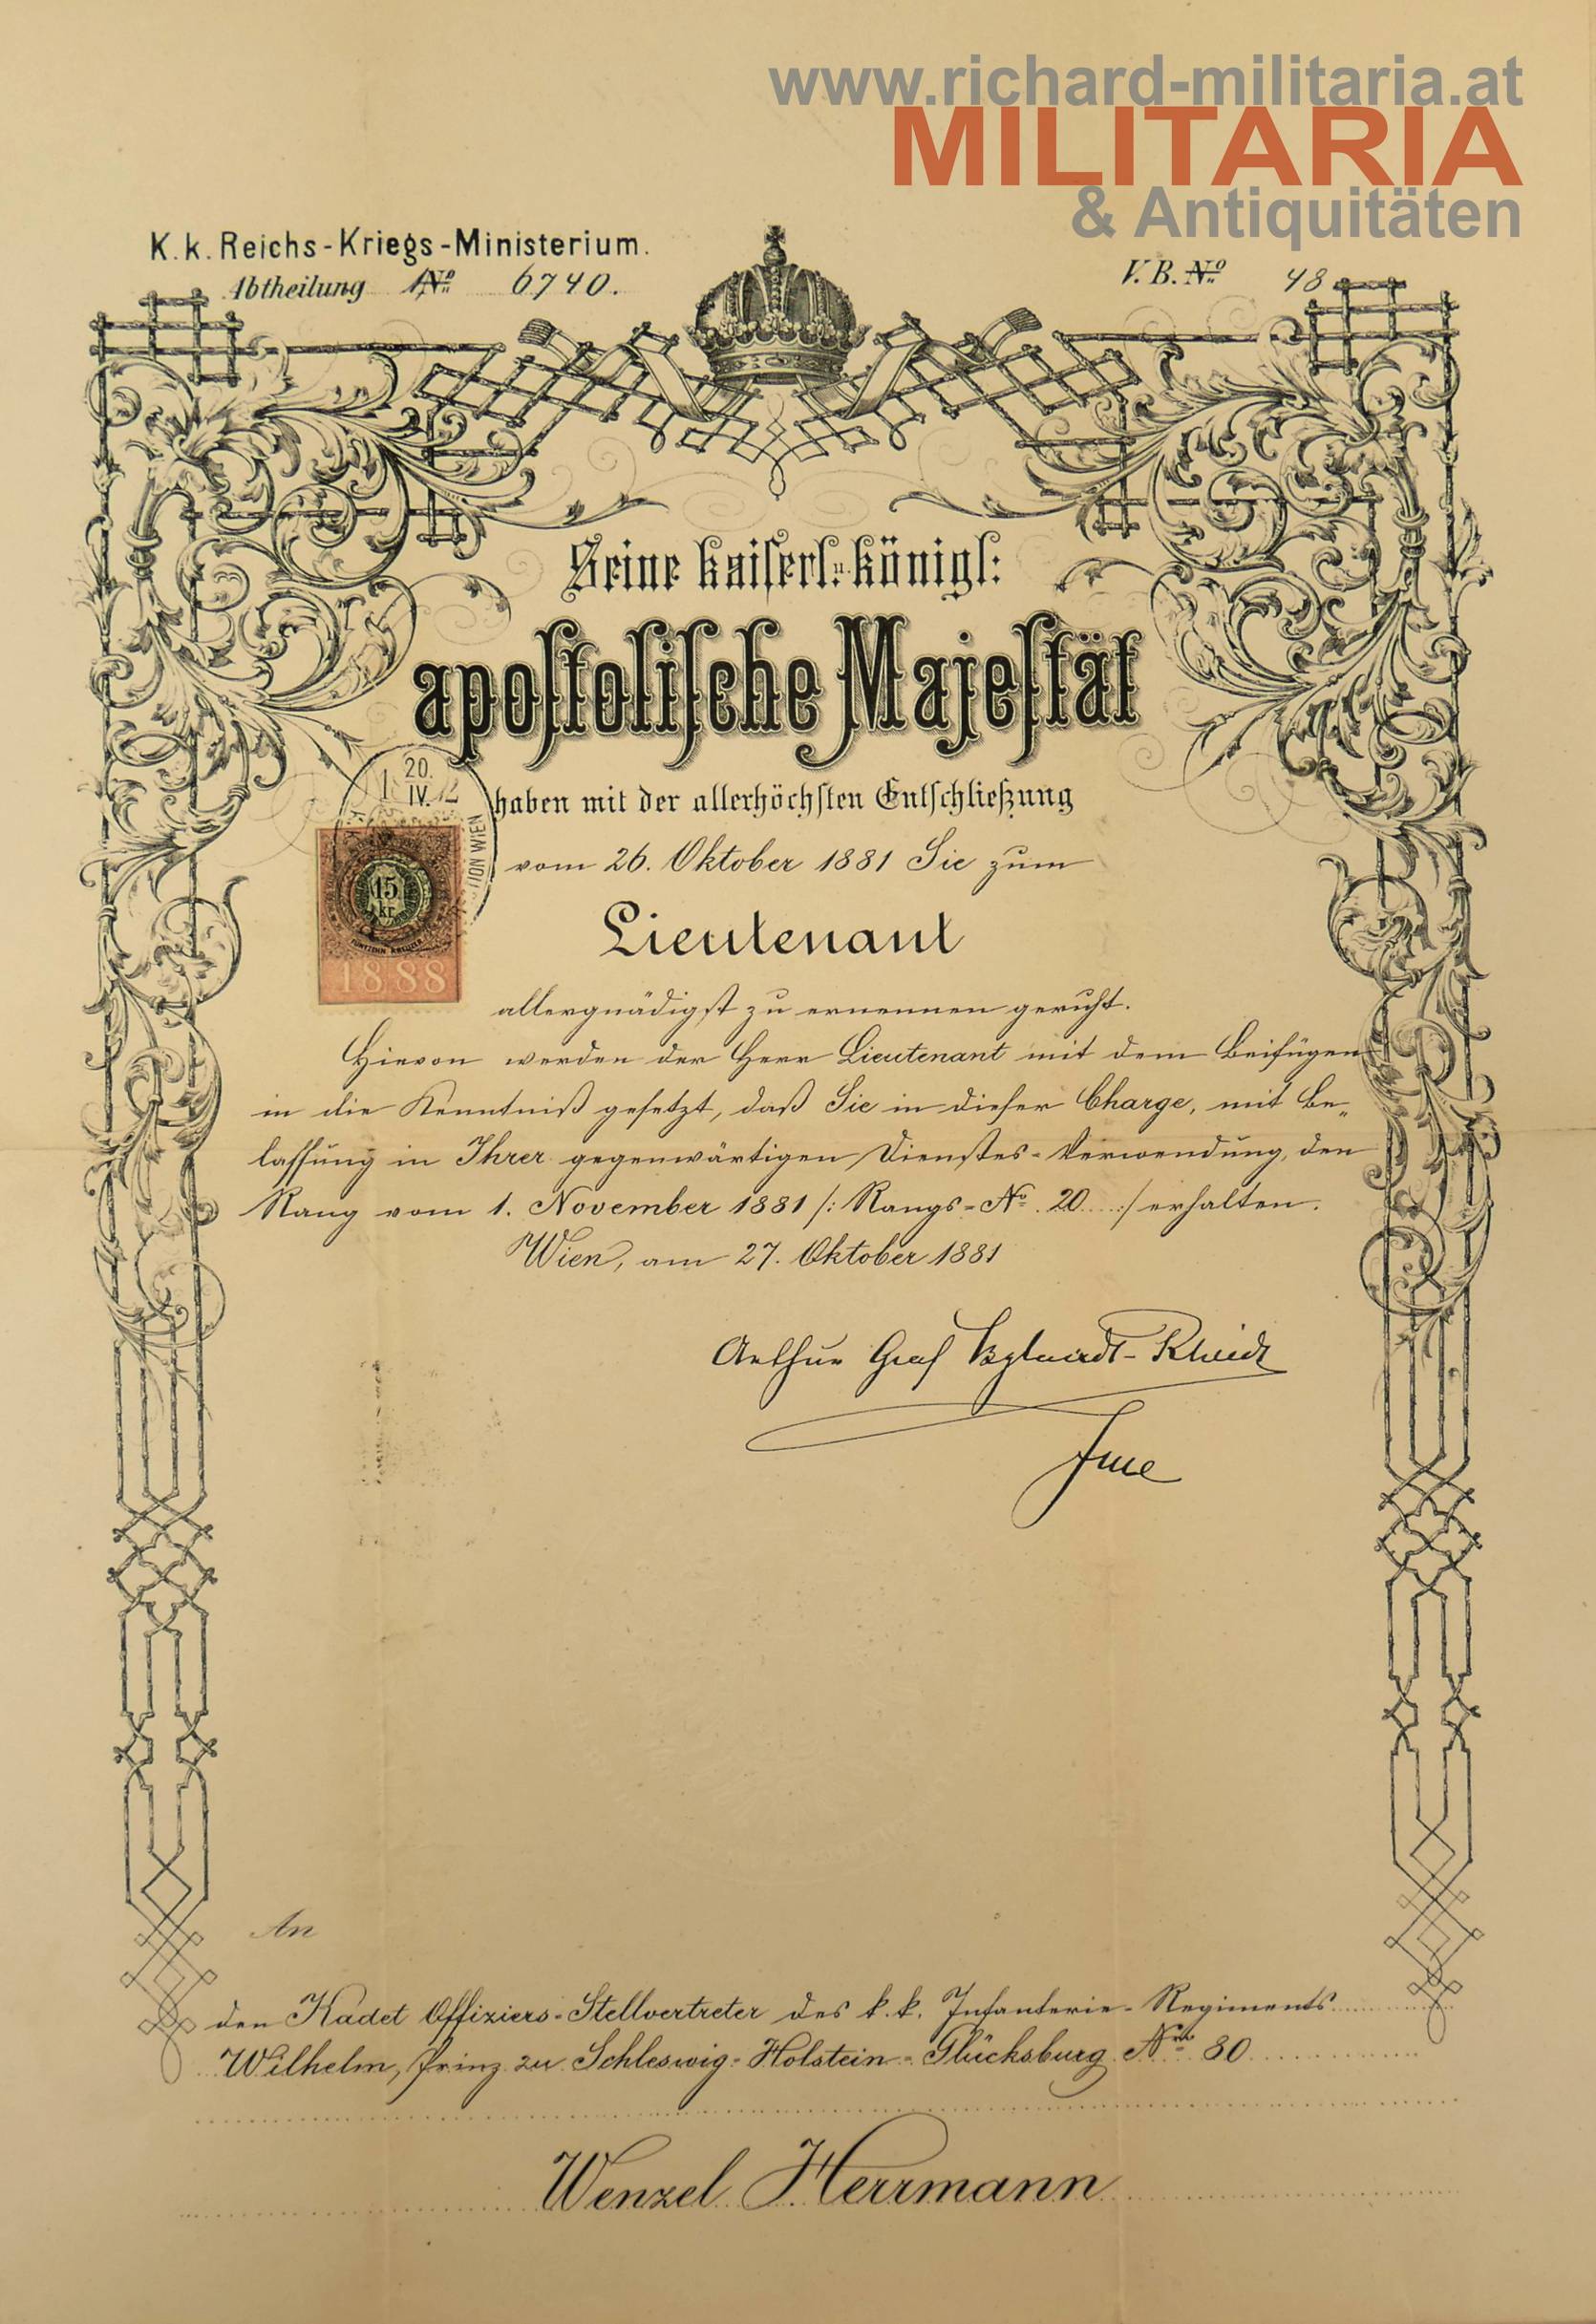 www.richard-militaria.at
MILITARIA
& Antiquitäten
K. k. Reichs-Kriegs-Ministerium.
Abtheilung 1, Nº 6740.
V. B. Nº 48
Seine kaiserl: königl:
apostolische Majestät
20.
IV.
WIEN
haben mit der allerhöchsten Entschließung
vom 26. Oktober 1881 Sie zum
15
kr.
FÜNFZEHN KREUZER
1888
Lieutenant
allergnädigst zu ernennen geruht.
Hievon werden der Herr Lieutenant mit dem Beifügen
in die Kenntniß gesetzt, daß Sie in dieser Charge, mit Be„
lassung in Ihrer gegenwärtigen Dienstes-Verwendung, den
Rang vom 1. November 1881 /: Rangs-Nº 20 :/ erhalten.
Wien, am 27. Oktober 1881
Arthur Graf Bylandt-Rheidt
FME
An
den Kadet Offiziers-Stellvertreter des k. k. Infanterie-Regiments
Wilhelm, Prinz zu Schleswig-Holstein-Glücksburg Nro 80
Wenzel Herrmann